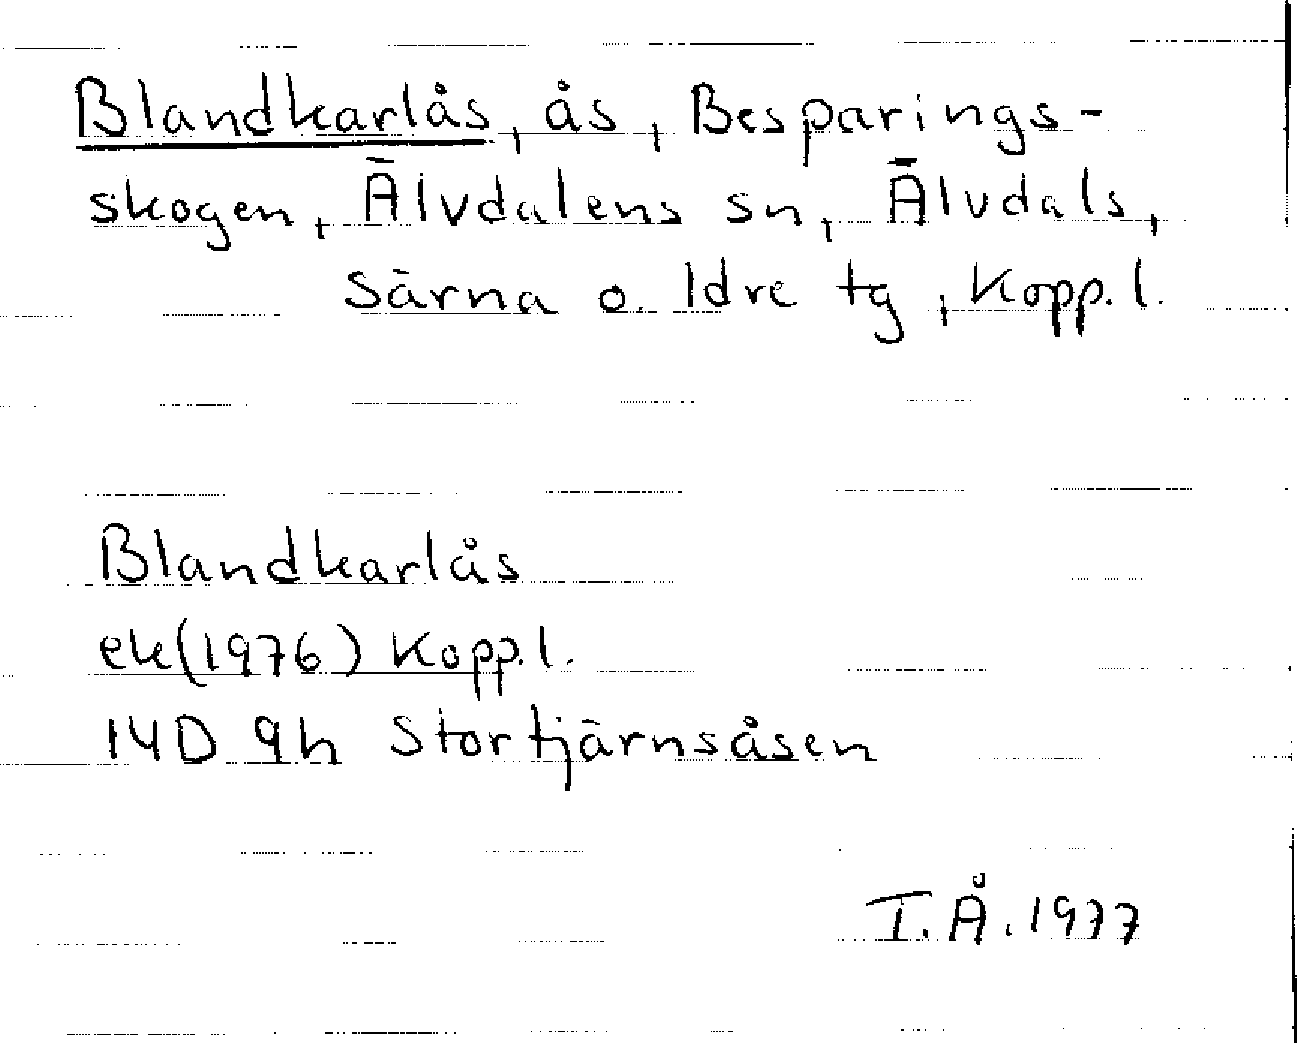 Blandkarlås, ås, Besparings-
skogen, Älvdalens sn, Älvdals,
Särna o. Idre tg, Kopp. l.
Blandkarlås
ek(1976) Kopp. l.
14D 9h Stortjärnsåsen
I. Å. 1977